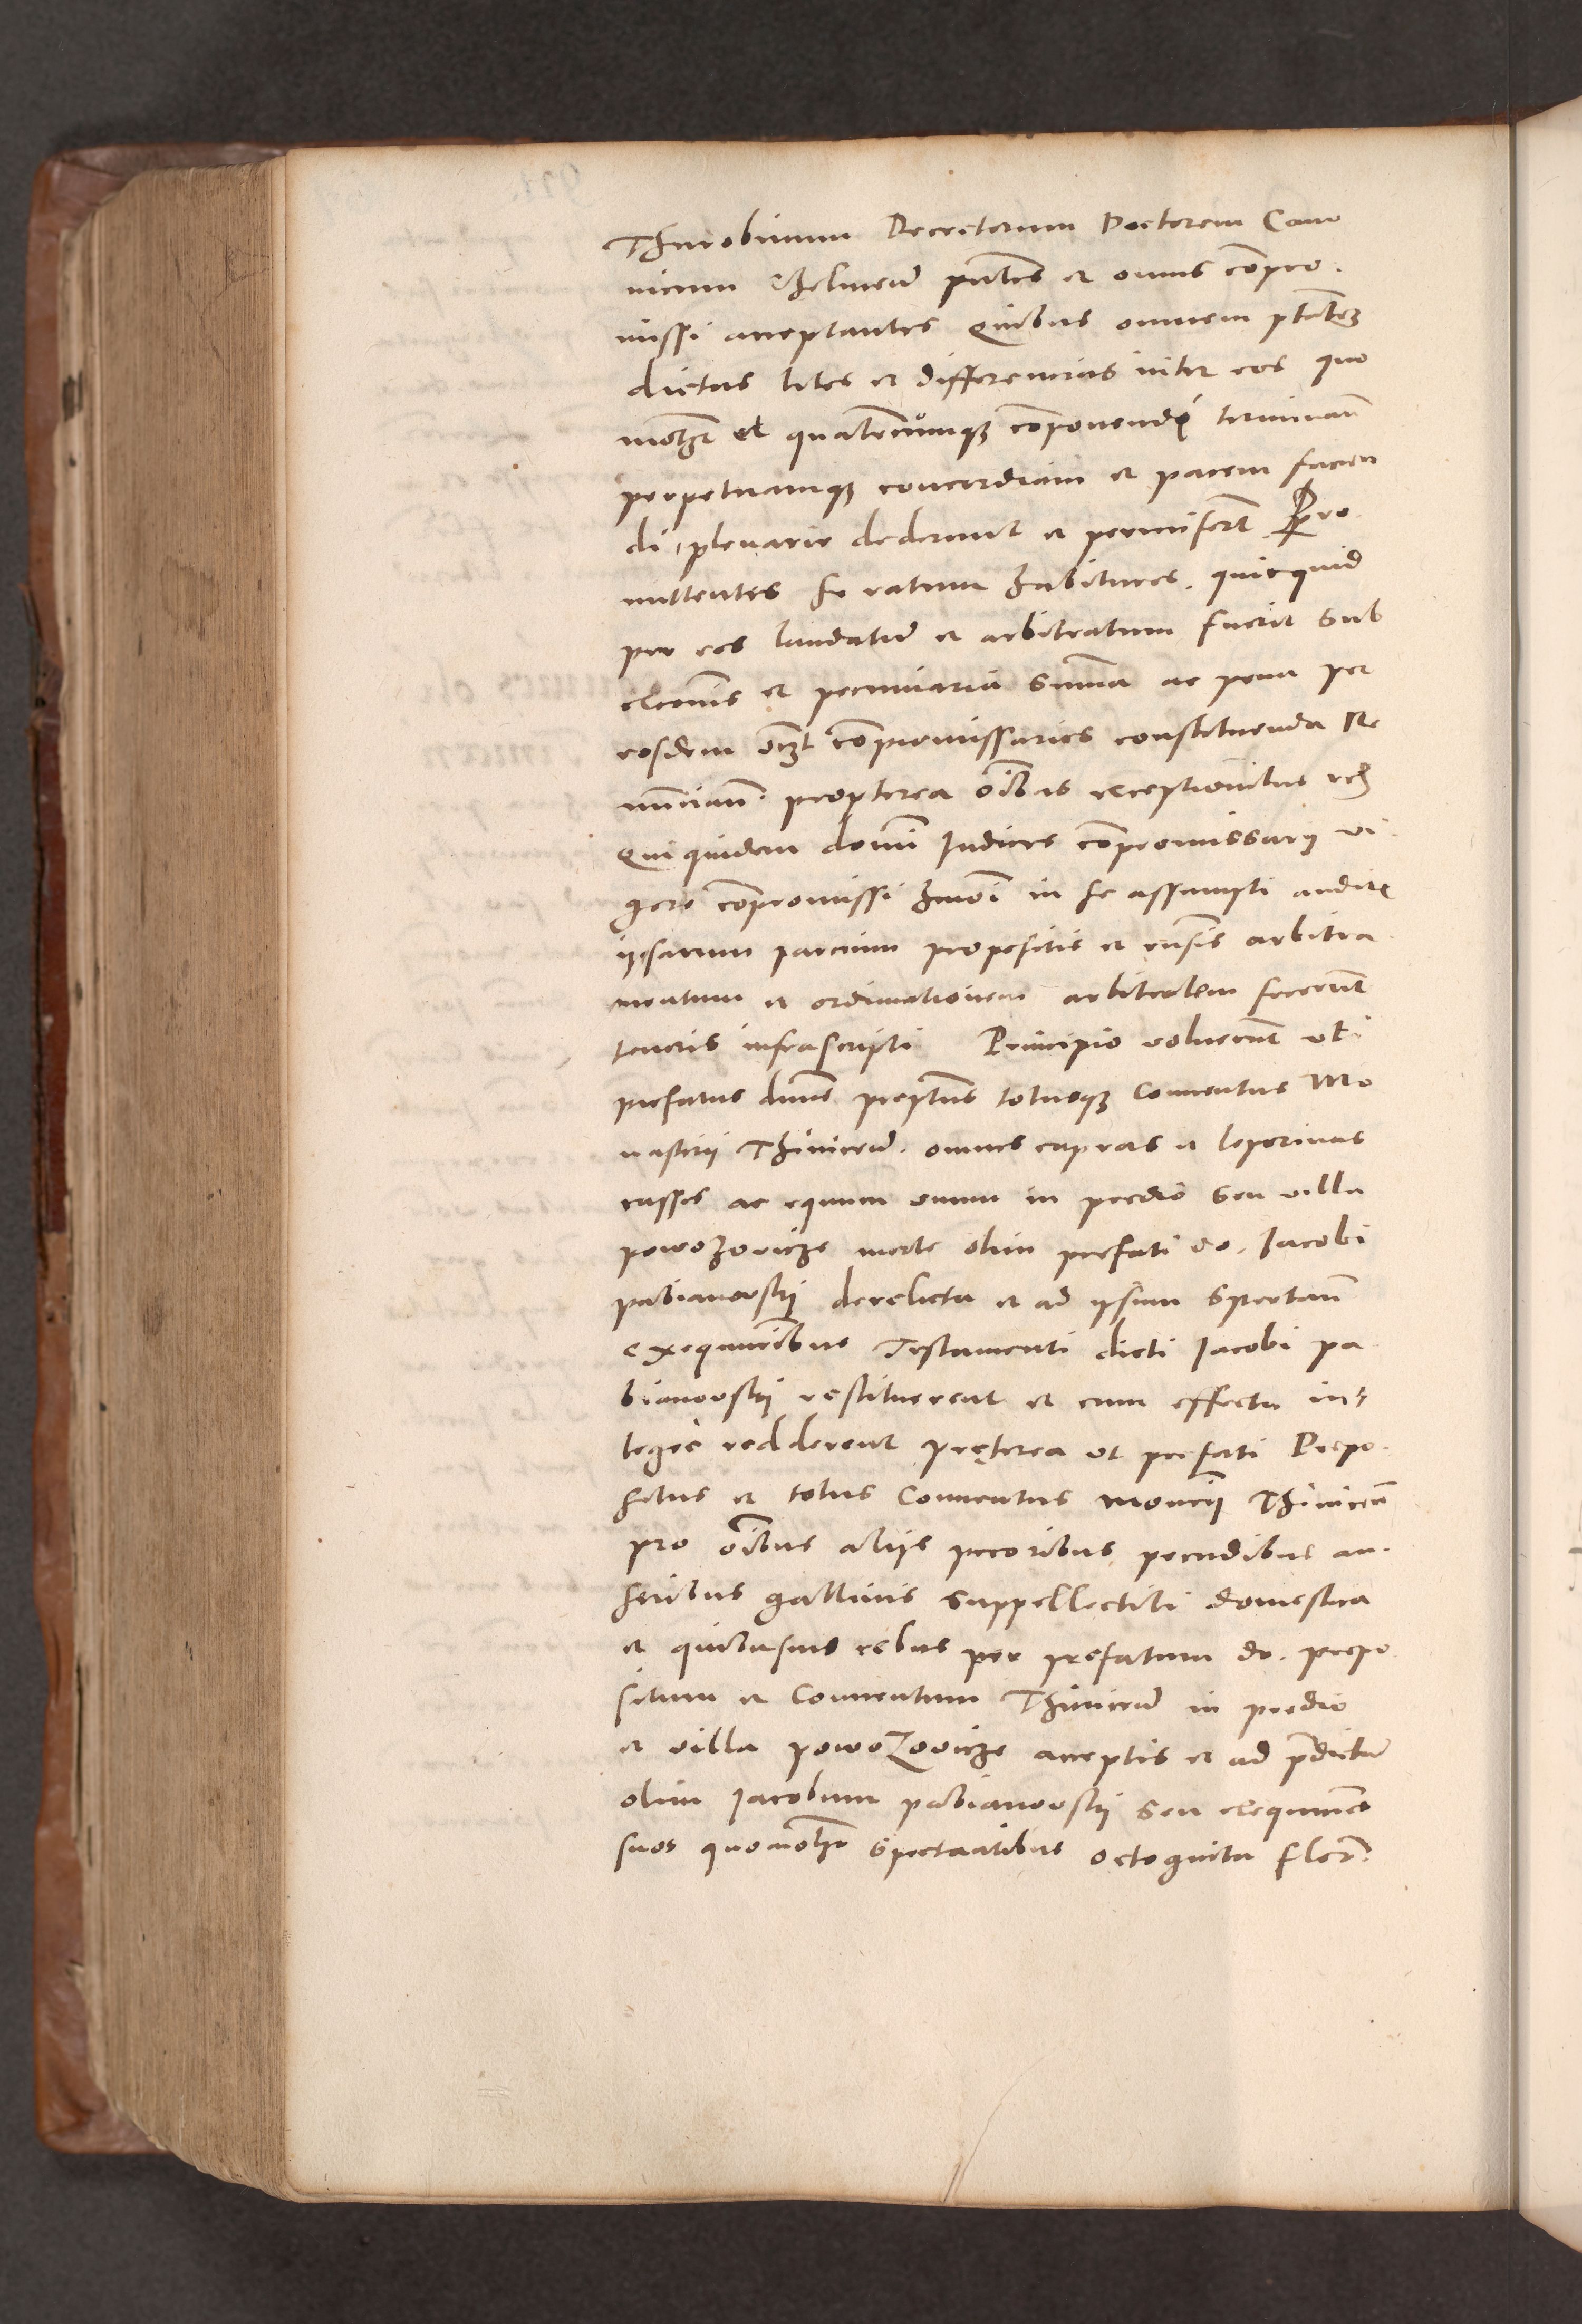 Thurobinum Decretorum Doctorem Cano
nicum Chelmeñ pñtes et onus compro.
missi acceptantes Quibus omnem ptatẽ
dictas lites et differencias inter eos quo
molt et qualitercumqꝫ componendi terminañ
perpetuamqꝫ concordiam et pacem facien
di, plenarie dederunt et permiserũt Pro
mittentes se ratum habituros. quicquid
per eos laudatũ et arbitratum fuerit Sub
et pecuniaria Summa ac pena per
eosdem compromissarios constituenda Re
nunciañ. propterea oĩbus exceptionibus
Qui quidem domi Iudices compromissarij vi
gore compromissi hmõi in se assumpti auditis
ipsarum parcium propositis et arbitra
mentum et ordinationem arbitralem fecerunt
tenoris infrascripti Principio voluerunt uti
prefatus dñus prepositus totusqꝫ Conuentus Mo
nasterij Thiniceñ. omnes capreas et leporinas
casses ac equum unum in predio Seu villa
powozowicze morte olim prefati do. Iacobi
pabianowskij derelicta et ad ipsum Spectañ
exequutoribus Testamenti dicti Iacobi pa
bianowskij restituerent et cum effectu in
tegre redderent Pręterea ut prefati Prepo.
situs et totus Conuentus Monrij Thiniceñ
pro oĩbus aliis pecoribus pecudibus an.
seribus gallinis Suppellectili domestica
et quibusuis rebus per prefatum do. prepo
situm et Conuentum Thiniceñ in predio
et villa powozowicze acceptis et ad p̃dictũ
olim Iacobum pabianowskij Seu exequutores
suos quomolt Spectantibus octoginta flor.